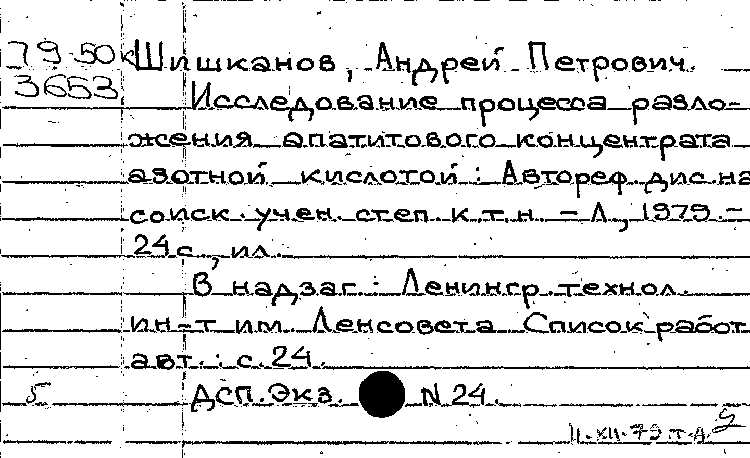 79-50к Шишканов, Андрей Петрович.
3653 Исследование процесса разло-
жения апатитового концентрата
азотной кислотой: Автореф. дис. на
соиск. учен. степ. к.т.н. - Л., 1979.-
24 с., ил.
В надзаг.: Ленингр. технол.
ин-т им. Ленсовета. Список работ
авт.: с. 24.
5 ДСП. Экз. N 24.
11.XII.79.т.д.